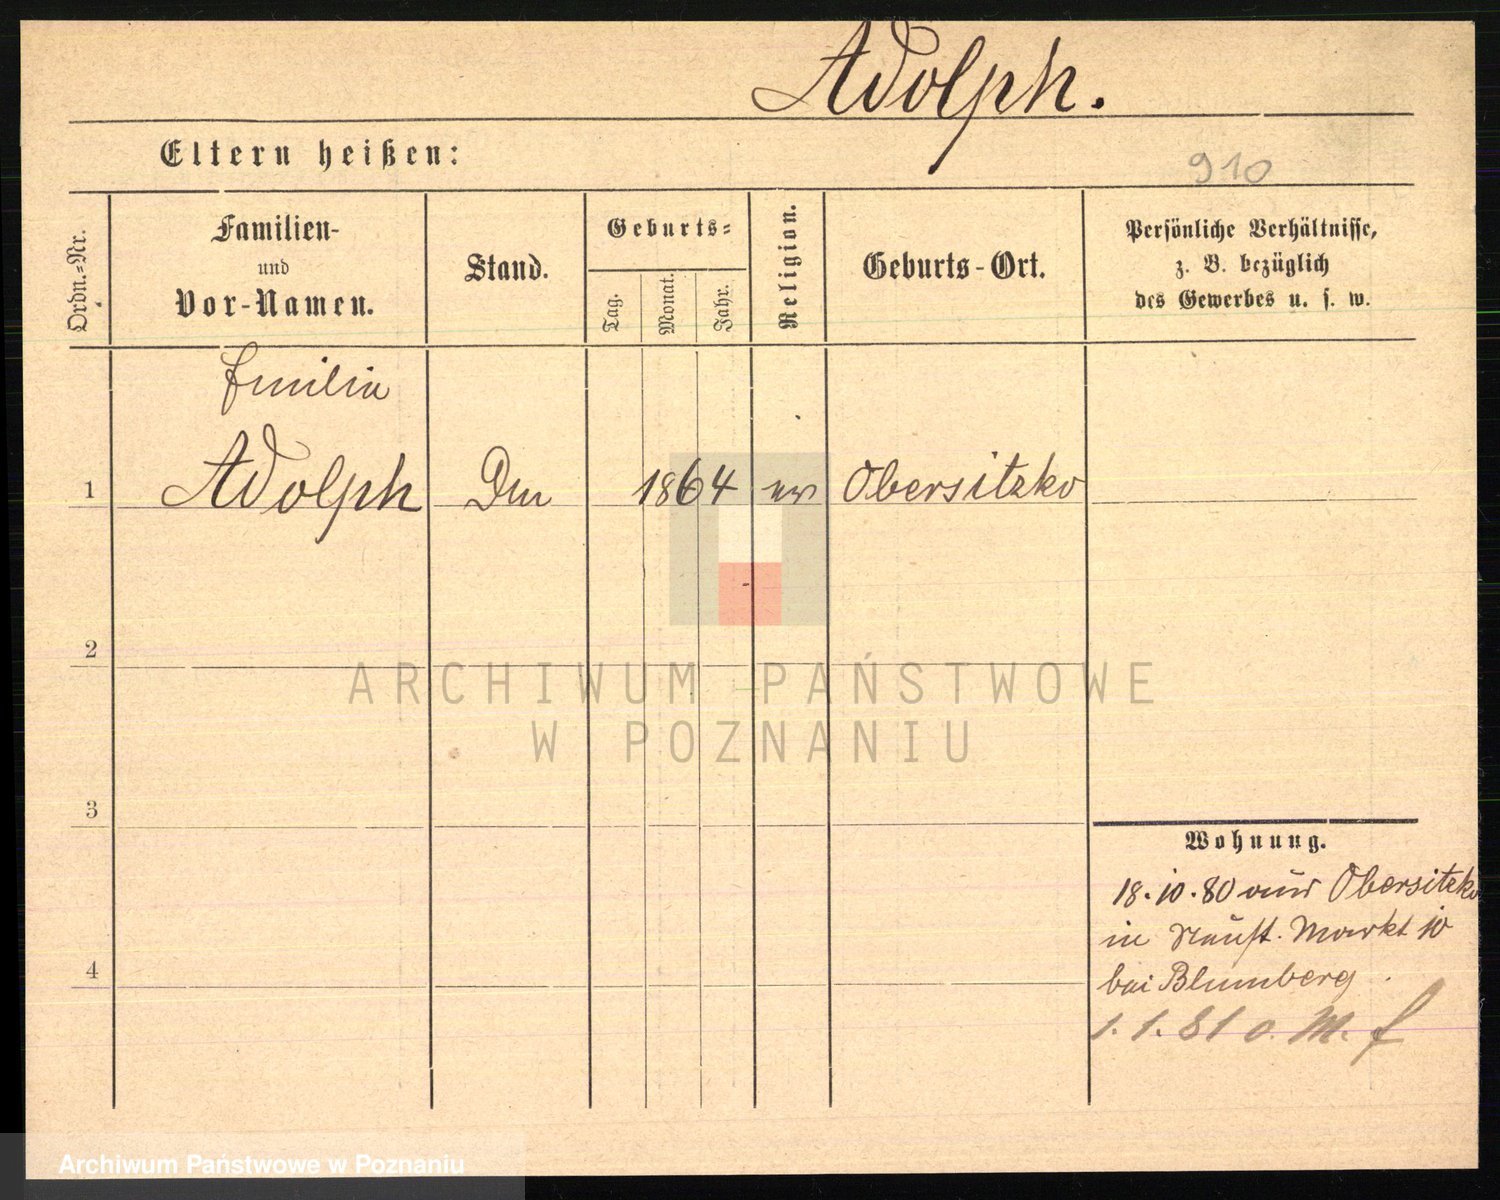 Adolph.
Eltern heißen:
910
Ordn.-Nr.
Familien-
und
Vor-Namen.
Stand.
Geburts-
Tag.
Monat.
Jahr.
Religion.
Geburts-Ort.
Persönliche Verhältnisse,
z. B. bezüglich
des Gewerbes u. s. w.
Emilie
1 Adolph 1864 ev Obersitzko
2
ARCHIWUM PAŃSTWOWE
W POZNANIU
3
Wohnung.
18.10.80 aus Obersitzko
in Neust. Markt 10
bei Blumberg
4
1.1.81 o. M. f
Archiwum Państwowe w Poznaniu